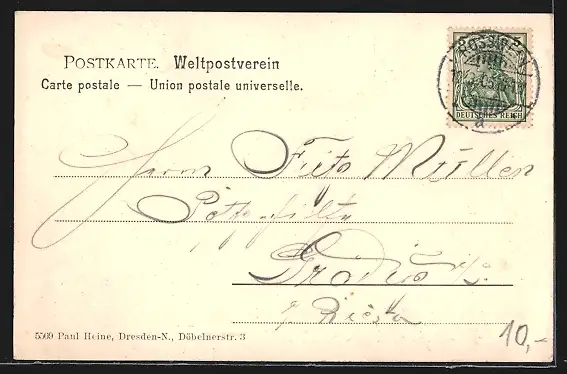 POSTKARTE. Weltpostverein
Carte postale — Union postale universelle.
DEUTSCHES REICH
Herrn Fritz Müller
Gröditz
b/ Riesa
5509 Paul Heine, Dresden-N., Döbelnerstr. 3
10,-